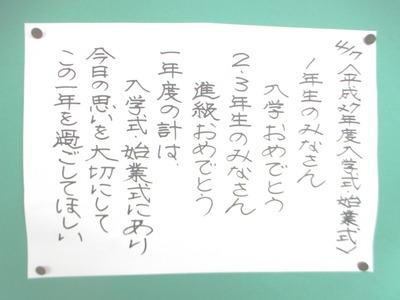 4/7〈平成27年度入学式・始業式〉
1年生のみなさん
入学おめでとう
2・3年生のみなさん
進級おめでとう
一年度の計は、
入学式・始業式にあり
今日の思いを大切にして
この一年を過ごしてほしい